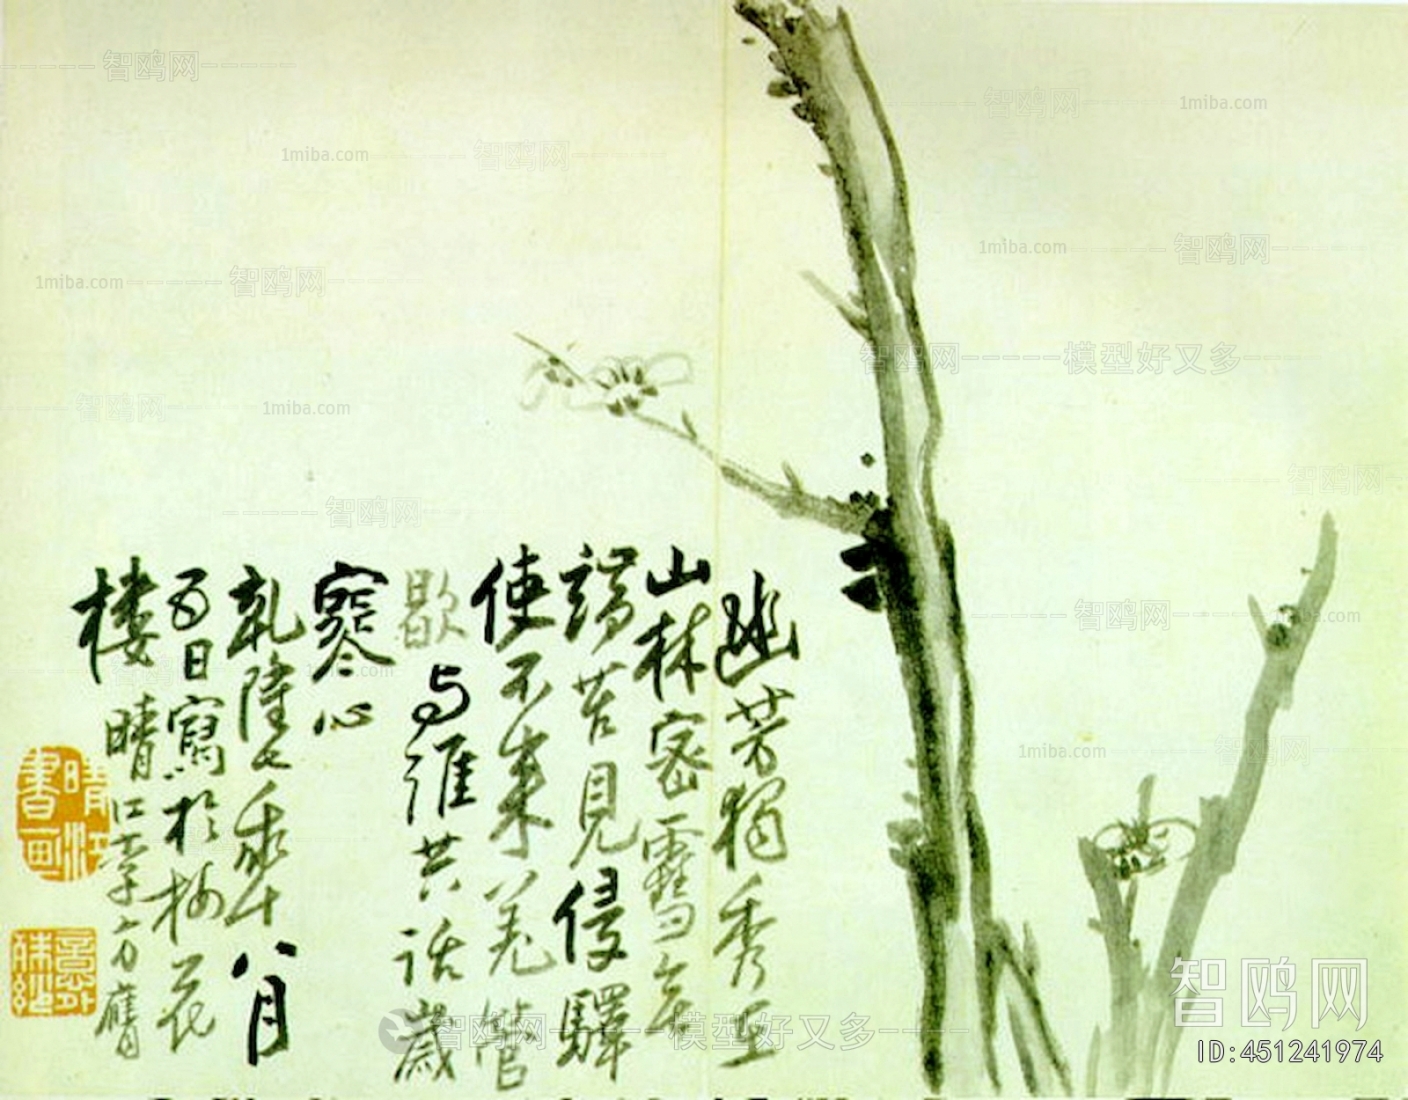 幽芳獨秀在
山林密雪無
端苦見侵驛
使不來羌管
歇与誰共話歲
寒心
乾隆七年八月
五日寫於梅花
樓晴江李方膺
晴江書画
智鸥网
1miba.com
智鸥网-----模型好又多
智鸥网
ID:451241974